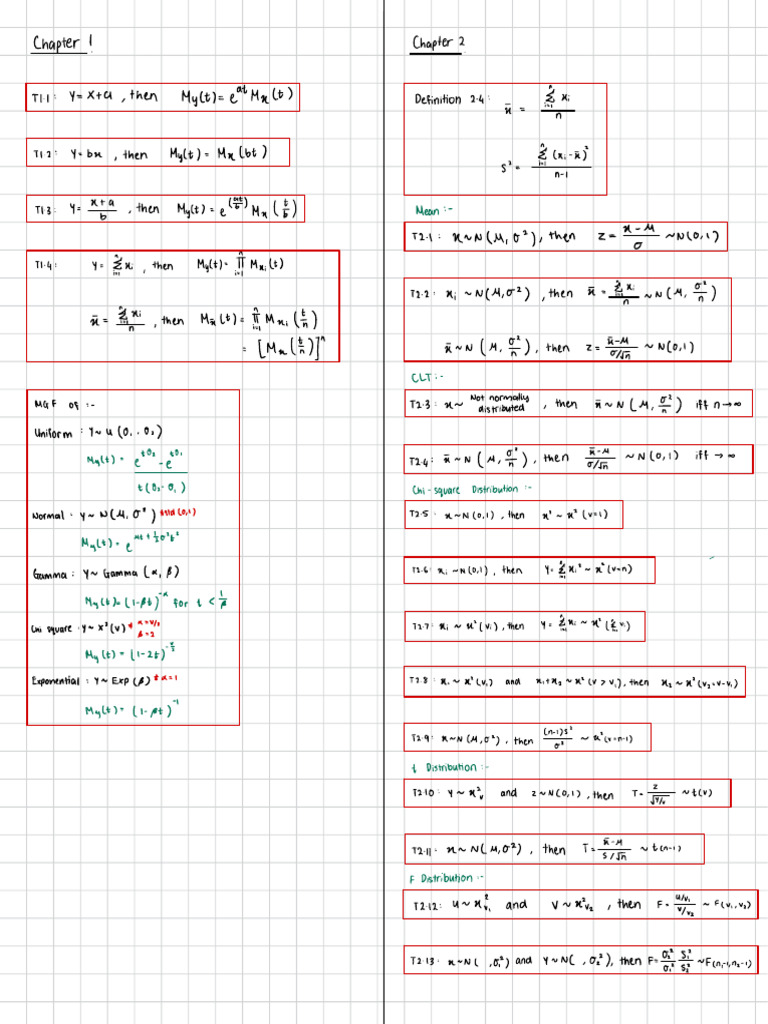 Chapter 1
T1.1: Y = X+a, then My(t) = e^{at} Mx(t)
T1.2: Y = bx, then My(t) = Mx(bt)
T1.3: Y = \frac{x+a}{b}, then My(t) = e^{(\frac{at}{b})} Mx(\frac{t}{b})
T1.4: Y = \sum_{i=1}^{n} xi, then My(t) = \prod_{i=1}^{n} Mxi(t)
x̄ = \frac{\sum_{i=1}^{n} xi}{n}, then Mx̄(t) = \prod_{i=1}^{n} Mxi(\frac{t}{n})
= [Mx(\frac{t}{n})]^n
MGF of :-
Uniform : Y~U(θ1, θ2)
My(t) = \frac{e^{tθ2} - e^{tθ1}}{t(θ2-θ1)}
Normal : Y~N(μ, σ²)
My(t) = e^{μt + \frac{1}{2}σ²t²}
Gamma : Y~ Gamma (α, β)
My(t) = (1-βt)^{-α} for t < \frac{1}{β}
Chi square : Y~x²(v) * α = v/2
β = 2
My(t) = (1-2t)^{-\frac{v}{2}}
Exponential : Y~ Exp (β) * α = 1
My(t) = (1-βt)^{-1}
Chapter 2
Definition 2.4: x̄ = \frac{\sum_{i=1}^{n} xi}{n}
S² = \frac{\sum_{i=1}^{n} (xi - x̄)²}{n-1}
Mean :-
T2.1: x~N(μ, σ²), then Z = \frac{x-μ}{σ} ~N(0,1)
T2.2: xi ~N(μ,σ²), then x̄ = \frac{\sum_{i=1}^{n} xi}{n} ~N(μ, \frac{σ²}{n})
x̄~N(μ, \frac{σ²}{n}), then Z = \frac{x̄-μ}{σ/√n} ~ N(0,1)
CLT :-
T2.3: x~ Not normally distributed, then x̄~N(μ, \frac{σ²}{n}) iff n→∞
T2.4: x̄~N(μ, \frac{σ²}{n}), then \frac{x̄-μ}{σ/√n} ~N(0,1) iff →∞
Chi-square Distribution :-
T2.5: x~N(0,1), then x² ~ x²(v=1)
T2.6: xi ~N(0,1), then Y = \sum_{i=1}^{n} xi² ~ x²(v=n)
T2.7: xi ~ x²(vi), then Y = \sum_{i=1}^{n} xi ~ x²(\sum_{i=1}^{n} vi)
T2.8: x1 ~ x²(v1) and x1+x2 ~ x²(v > v1), then x2 ~ x²(v2=v-v1)
T2.9: x~N(μ,σ²), then \frac{(n-1)S²}{σ²} ~ x²(v=n-1)
t Distribution :-
T2.10: Y ~ x²v and Z~N(0,1), then T = \frac{Z}{\sqrt{Y/v}} ~t(v)
T2.11: x~N(μ,σ²), then T = \frac{x̄-μ}{S/√n} ~t(n-1)
F Distribution :-
T2.12: U~x²v1 and V~x²v2, then F = \frac{U/v1}{V/v2} ~ F(v1, v2)
T2.13: x~N( ,σ1²) and Y~N( ,σ2²), then F = \frac{σ2²}{σ1²} \frac{S1²}{S2²} ~F(n1-1, n2-1)